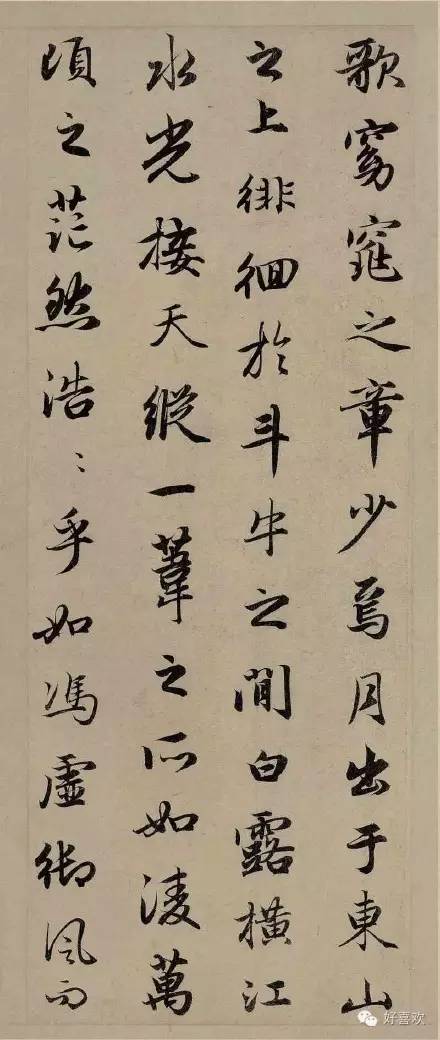 歌窈窕之章少焉月出于東山
之上徘徊於斗牛之間白露橫江
水光接天縱一葦之所如淩萬
頃之茫然浩〻乎如馮虛御風而
好喜欢